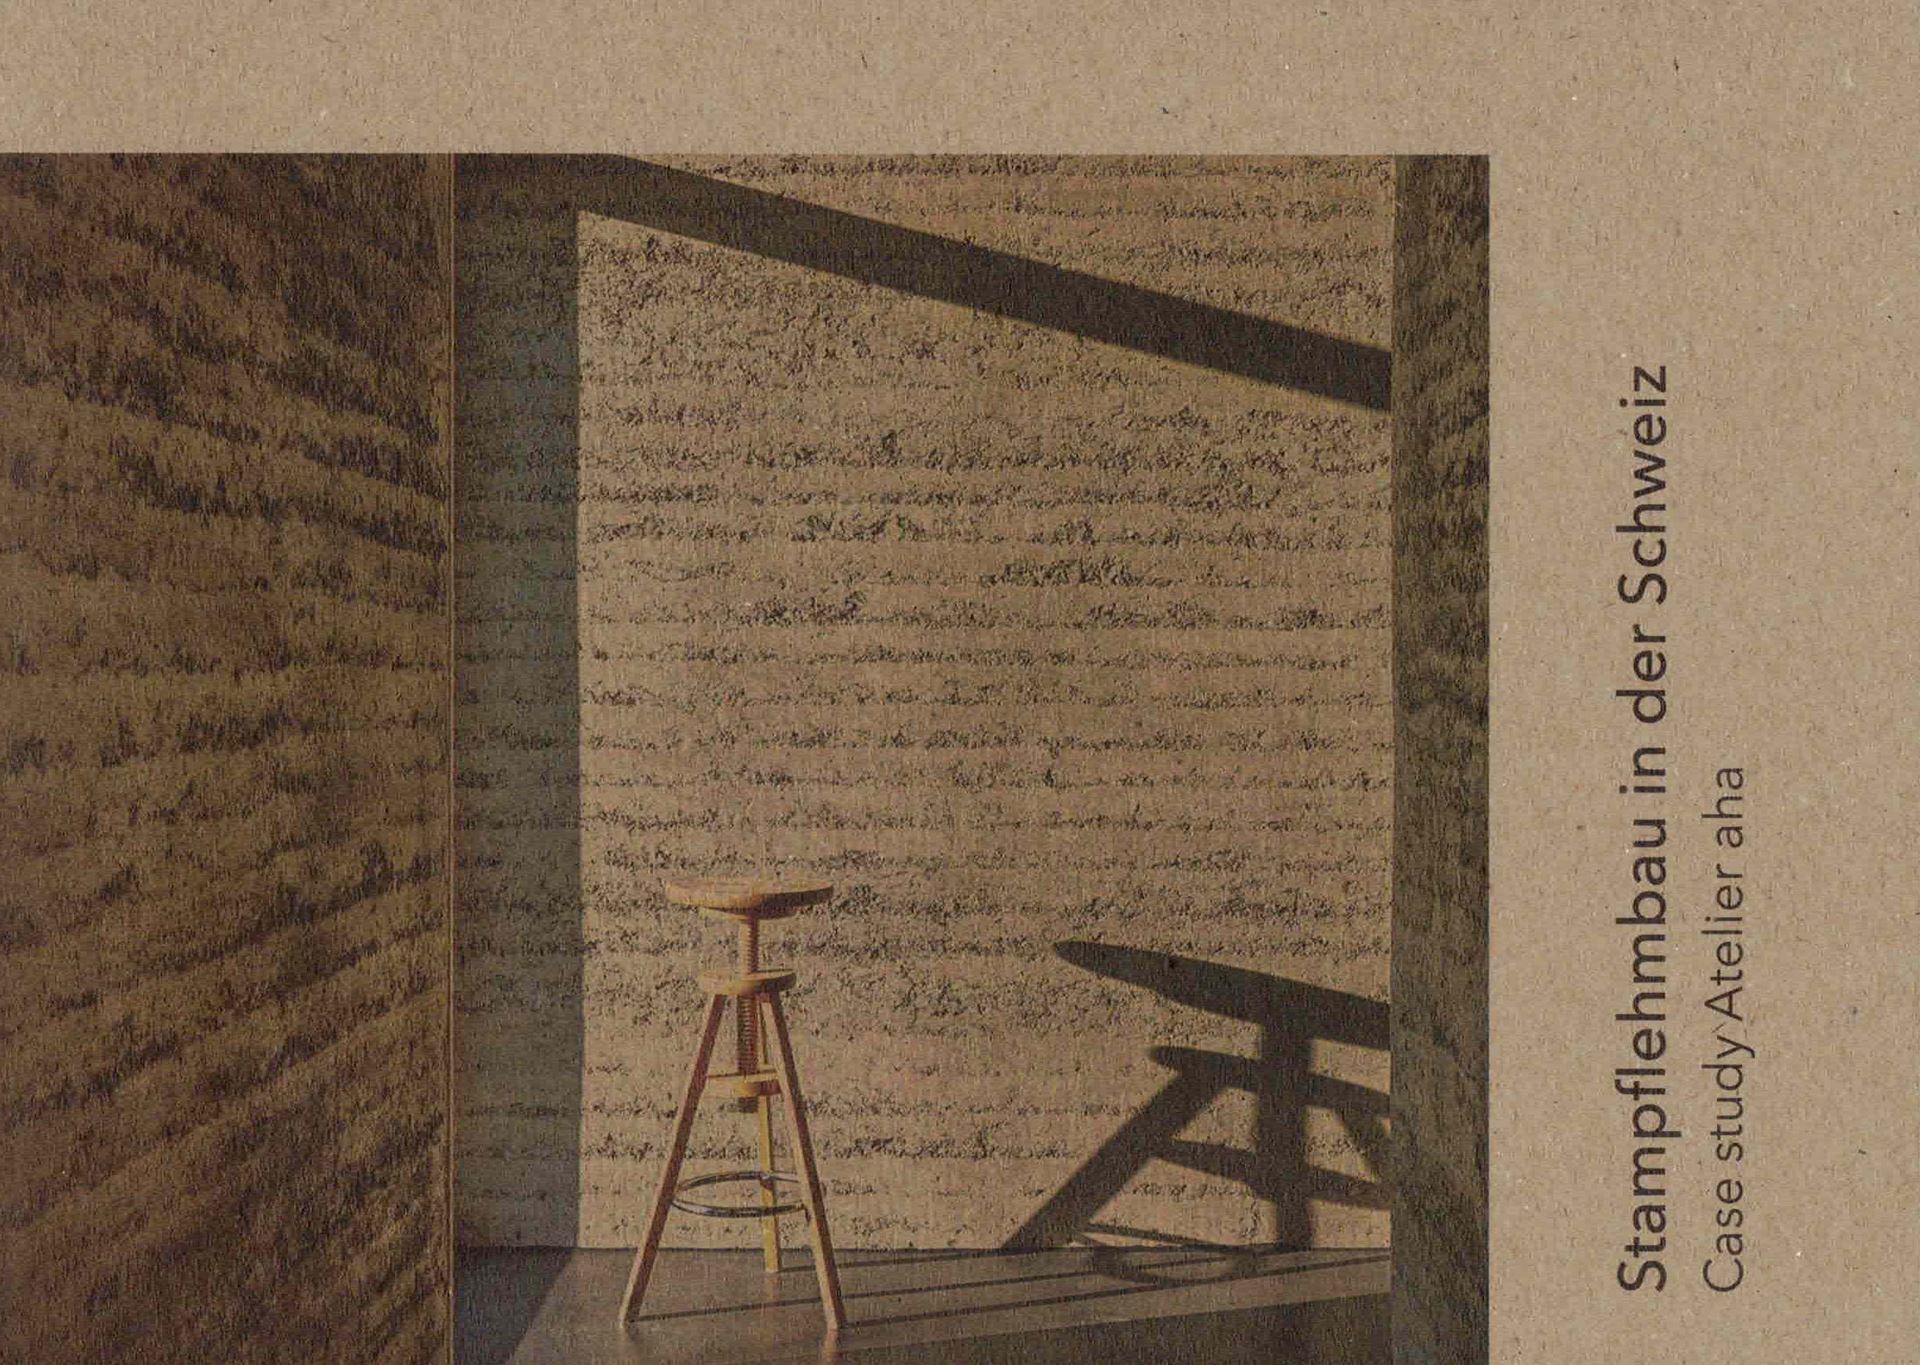 Stampflehmbau in der Schweiz
Case study Atelier aha